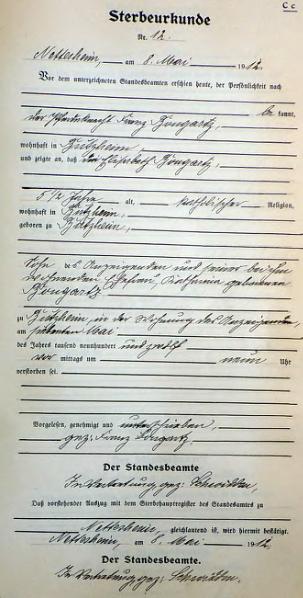 C c
Sterbeurkunde
Nr. 12.
Nettersheim, am 8. Mai 1912.
Vor dem unterzeichneten Standesbeamten erschien heute, der Persönlichkeit nach
be kannt,
der Franz Bongartz,
wohnhaft in
und zeigte an, daß Elisabeth Bongartz,
5 1/2 Jahre alt, katholischer Religion,
wohnhaft in
geboren zu
des Anzeigenden und seiner bei ihm
wohnenden Ehefrau, Katharina geborenen
Bongartz
zu in der Wohnung des Anzeigenden,
am siebenten Mai
des Jahres tausend neunhundert und zwölf
vor mittags um neun Uhr
verstorben sei.
Vorgelesen, genehmigt und unterschrieben,
gez: Franz Bongartz
Der Standesbeamte
In Vertretung gez:
Daß vorstehender Auszug mit dem Sterbehauptregister des Standesamtes zu
Nettersheim, gleichlautend ist, wird hiermit bestätigt.
Nettersheim, am 8. Mai 1912.
Der Standesbeamte.
In Vertretung gez: